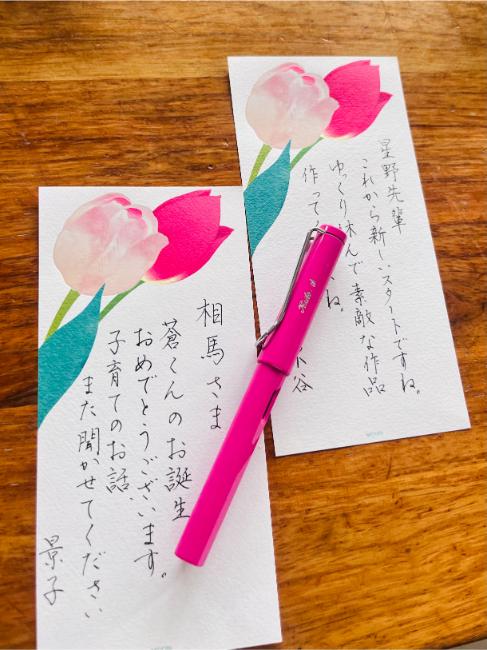 星野先輩
これから新しいスタートですね。
ゆっくり休んで素敵な作品
作って
ね。
谷
相馬さま
蒼くんのお誕生
おめでとうございます。
子育てのお話、
また聞かせてください
景子